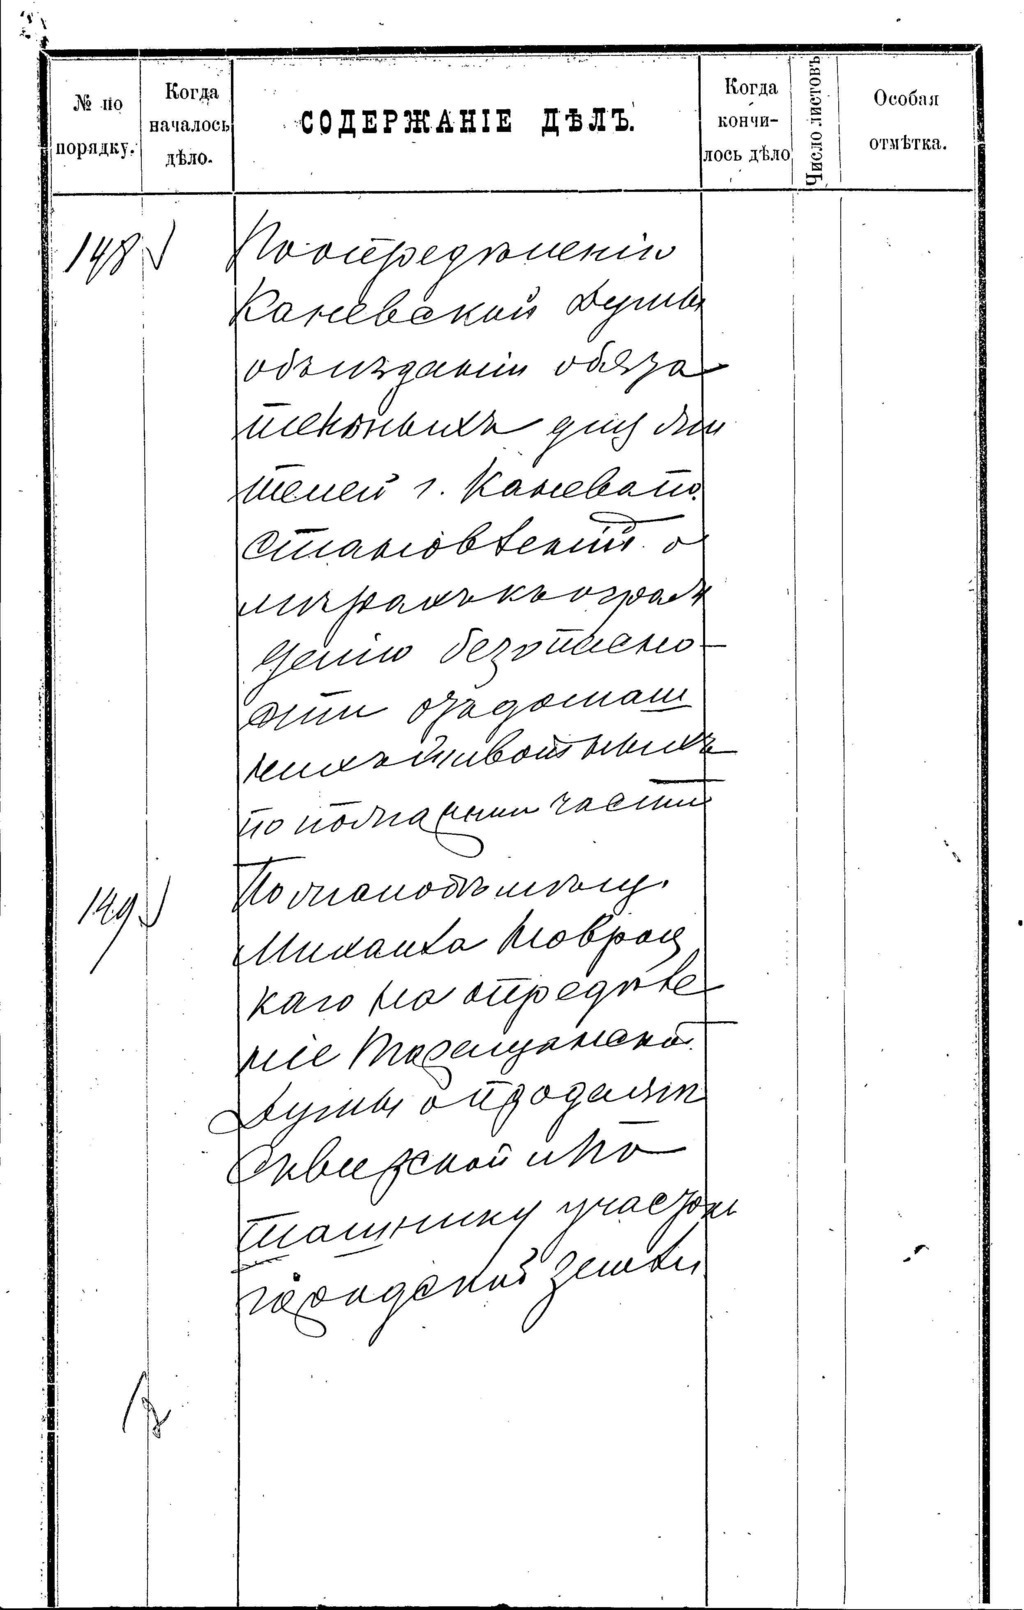 № по порядку.
Когда началось дѣло.
СОДЕРЖАНІЕ ДѢЛЪ.
Когда кончи-лось дѣло
Число листовъ
Особая отмѣтка.
148
По опредѣленію
Каневской Думы
объ изданіи обяза
тельныхъ для жи
телей г. Канева по
становленій о
мѣрахъ къ ограж
денію безопасно-
сти отъ домаш
нихъ животныхъ
по пожарной части
149
По жалобѣ мѣщ.
Михаила
каго на опредѣле
ніе Таращанской
Думы о продажѣ
Сквирской
участка
городской земли